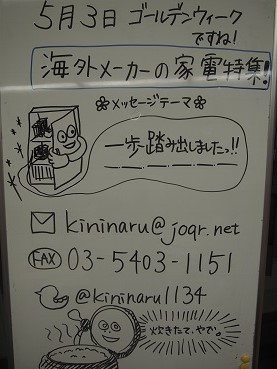 5月3日 ゴールデンウィーク
ですね!
海外メーカーの家電特集!
※メッセージテーマ※
一歩踏み出しましたっ!!
kininaru@joqr.net
FAX 03-5403-1151
@kininaru1134
炊きたて、やで。